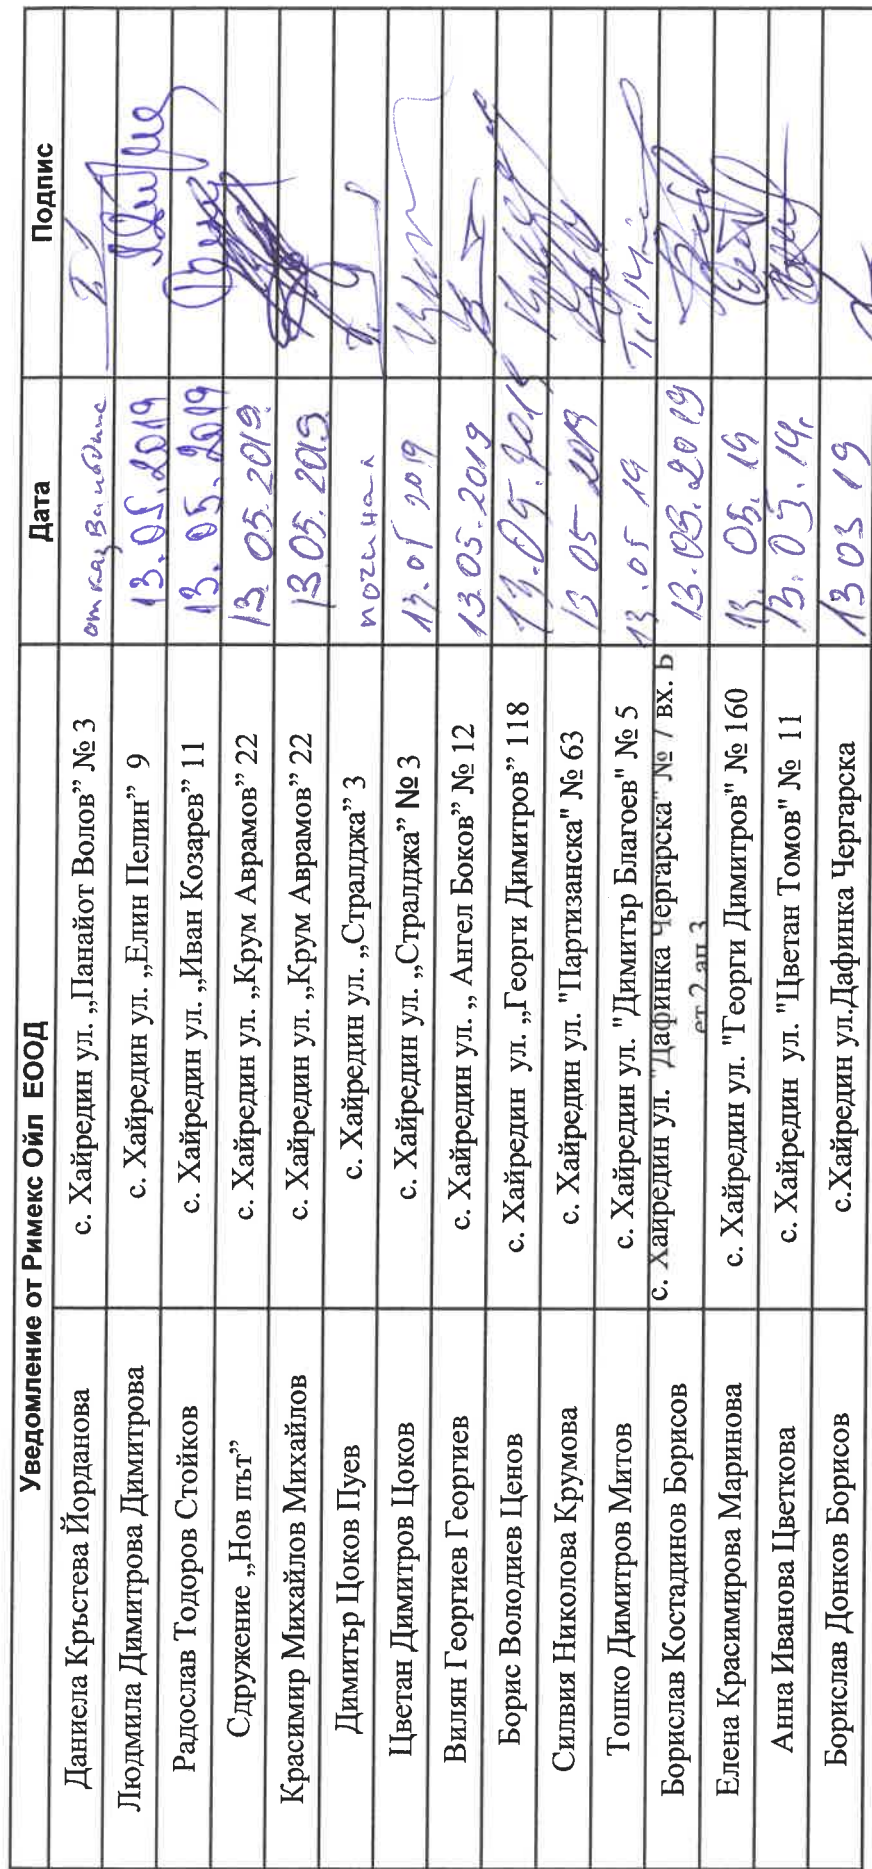 Уведомление от Римекс Ойл ЕООД Дата Подпис
Даниела Кръстева Йорданова с. Хайредин ул. „Панайот Волов” № 3 отказ
Людмила Димитрова Димитрова с. Хайредин ул. „Елин Пелин” 9 13.05.2019
Радослав Тодоров Стойков с. Хайредин ул. „Иван Козарев” 11 13.05.2019
Сдружение „Нов път” с. Хайредин ул. „Крум Аврамов” 22 13.05.2019
Красимир Михайлов Михайлов с. Хайредин ул. „Крум Аврамов” 22 13 05. 2019
Димитър Цоков Пуев с. Хайредин ул. „Стралджа” 3 починал
Цветан Димитров Цоков с. Хайредин ул. „Стралджа” № 3 13.05 2019
Вилян Георгиев Георгиев с. Хайредин ул. „ Ангел Боков” № 12 13.05.2019
Борис Володиев Ценов с. Хайредин ул. „Георги Димитров” 118 13.05.2019
Силвия Николова Крумова с. Хайредин ул. "Партизанска" № 63 13 05 2019
Тошко Димитров Митов с. Хайредин ул. "Димитър Благоев" № 5 13.05 19
Борислав Костадинов Борисов с. Хайредин ул. "Дафинка Чергарска" № 7 вх. Б 13.05.2019
ет 2 ап 3
Елена Красимирова Маринова с. Хайредин ул. "Георги Димитров" № 160 13. 05. 19
Анна Иванова Цветкова с. Хайредин ул. "Цветан Томов" № 11 13.05.19г.
Борислав Донков Борисов с.Хайредин ул.Дафинка Чергарска 13 05 19